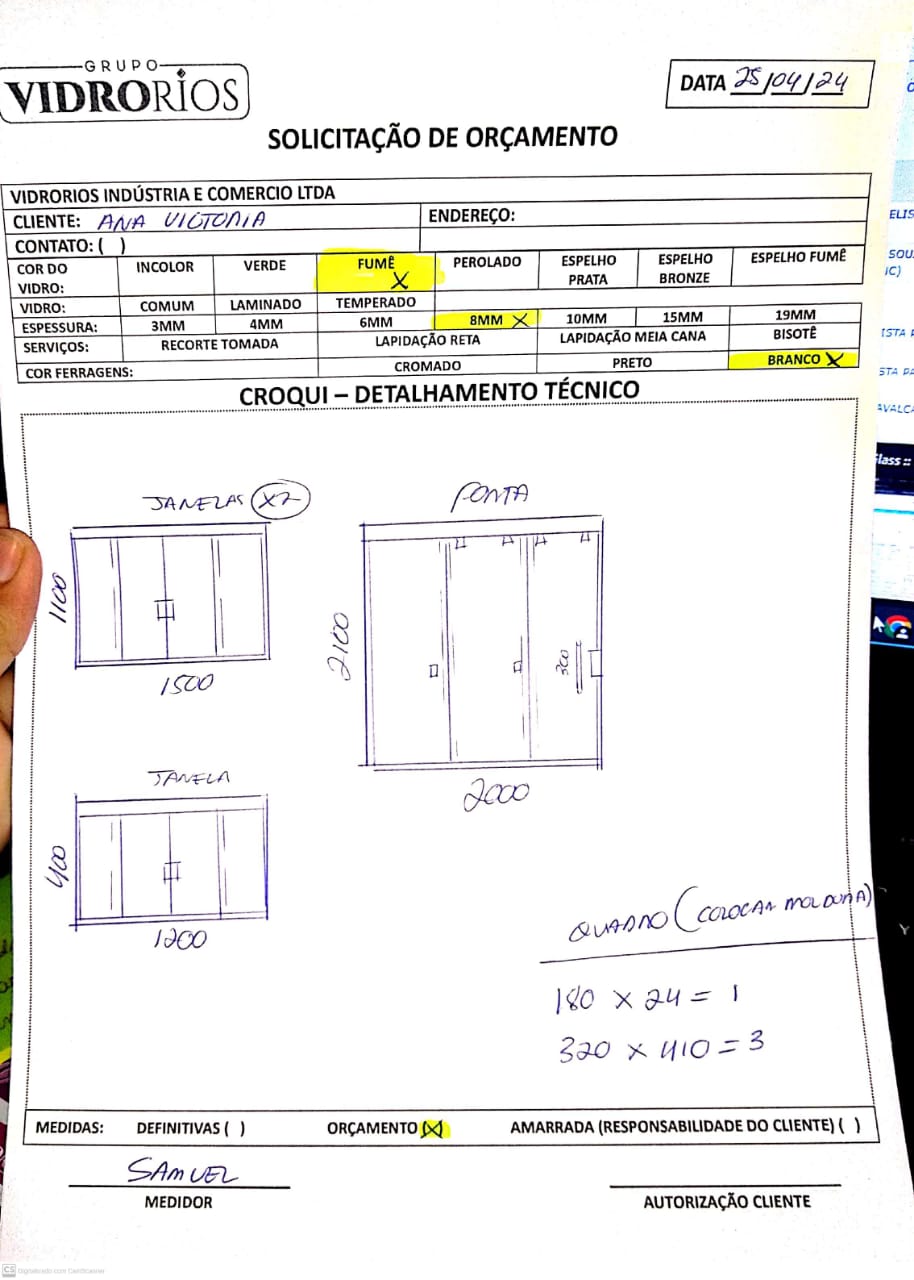 GRUPO
VIDRORIOS
DATA 25/04/24
SOLICITAÇÃO DE ORÇAMENTO
VIDRORIOS INDÚSTRIA E COMERCIO LTDA
CLIENTE: ANA VICTORIA
ENDEREÇO:
CONTATO: ( )
COR DO VIDRO: INCOLOR VERDE FUMÊ X PEROLADO ESPELHO PRATA ESPELHO BRONZE ESPELHO FUMÊ
VIDRO: COMUM LAMINADO TEMPERADO
ESPESSURA: 3MM 4MM 6MM 8MM X 10MM 15MM 19MM
SERVIÇOS: RECORTE TOMADA LAPIDAÇÃO RETA LAPIDAÇÃO MEIA CANA BISOTÊ
COR FERRAGENS: CROMADO PRETO BRANCO X
CROQUI – DETALHAMENTO TÉCNICO
JANELAS X2
1100
1500
PORTA
2100
300
2000
JANELA
400
1200
QUADRO (COLOCAR MOLDURA)
180 X 24 = 1
320 X 410 = 3
MEDIDAS: DEFINITIVAS ( ) ORÇAMENTO (X) AMARRADA (RESPONSABILIDADE DO CLIENTE) ( )
SAMUEL
MEDIDOR
AUTORIZAÇÃO CLIENTE
CS Digitalizado com CamScanner
ELIS
SOU
IC)
ISTA
STA PA
AVALCA
lass ::